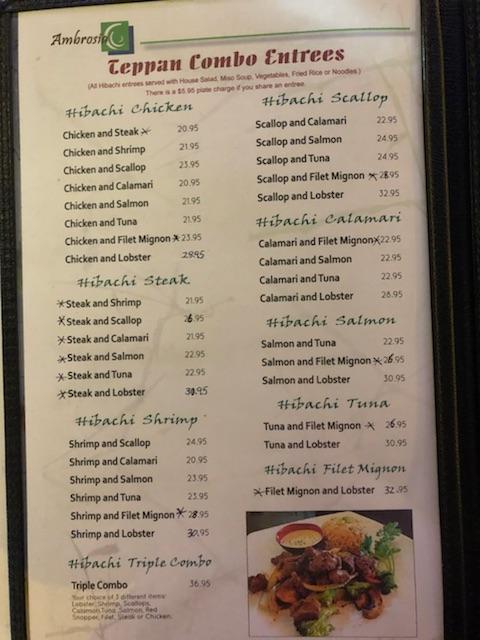 Ambrosia
Teppan Combo Entrees
(All Hibachi entrees served with House Salad, Miso Soup, Vegetables, Fried Rice or Noodles.)
There is a $5.95 plate charge if you share an entree.
Hibachi Chicken
Chicken and Steak * 20.95
Chicken and Shrimp 21.95
Chicken and Scallop 23.95
Chicken and Calamari 20.95
Chicken and Salmon 21.95
Chicken and Tuna 21.95
Chicken and Filet Mignon * 23.95
Chicken and Lobster 28.95
Hibachi Steak
*Steak and Shrimp 21.95
*Steak and Scallop 26.95
*Steak and Calamari 21.95
*Steak and Salmon 22.95
*Steak and Tuna 22.95
*Steak and Lobster 30.95
Hibachi Shrimp
Shrimp and Scallop 24.95
Shrimp and Calamari 20.95
Shrimp and Salmon 23.95
Shrimp and Tuna 23.95
Shrimp and Filet Mignon * 28.95
Shrimp and Lobster 30.95
Hibachi Triple Combo
Triple Combo 36.95
Your choice of 3 different items:
Lobster, Shrimp, Scallops,
Calamari, Tuna, Salmon, Red
Snapper, Filet, Steak or Chicken.
Hibachi Scallop
Scallop and Calamari 22.95
Scallop and Salmon 24.95
Scallop and Tuna 24.95
Scallop and Filet Mignon * 28.95
Scallop and Lobster 32.95
Hibachi Calamari
Calamari and Filet Mignon * 22.95
Calamari and Salmon 22.95
Calamari and Tuna 22.95
Calamari and Lobster 28.95
Hibachi Salmon
Salmon and Tuna 22.95
Salmon and Filet Mignon * 26.95
Salmon and Lobster 30.95
Hibachi Tuna
Tuna and Filet Mignon * 26.95
Tuna and Lobster 30.95
Hibachi Filet Mignon
*Filet Mignon and Lobster 32.95